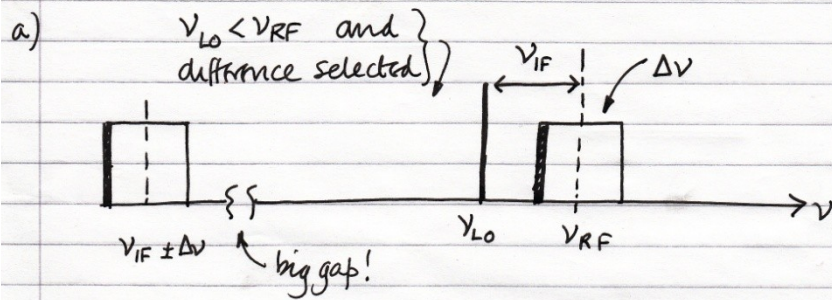 a)
ν_LO < ν_RF and
difference selected
ν_IF
Δν
ν_IF ± Δν
big gap!
ν_LO
ν_RF
ν